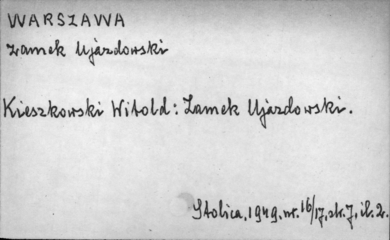 WARSZAWA
Zamek Ujazdowski
Kieszkowski Witold: Zamek Ujazdowski.
Stolica, 1949, nr. 16/17, str. 7, il. 2.